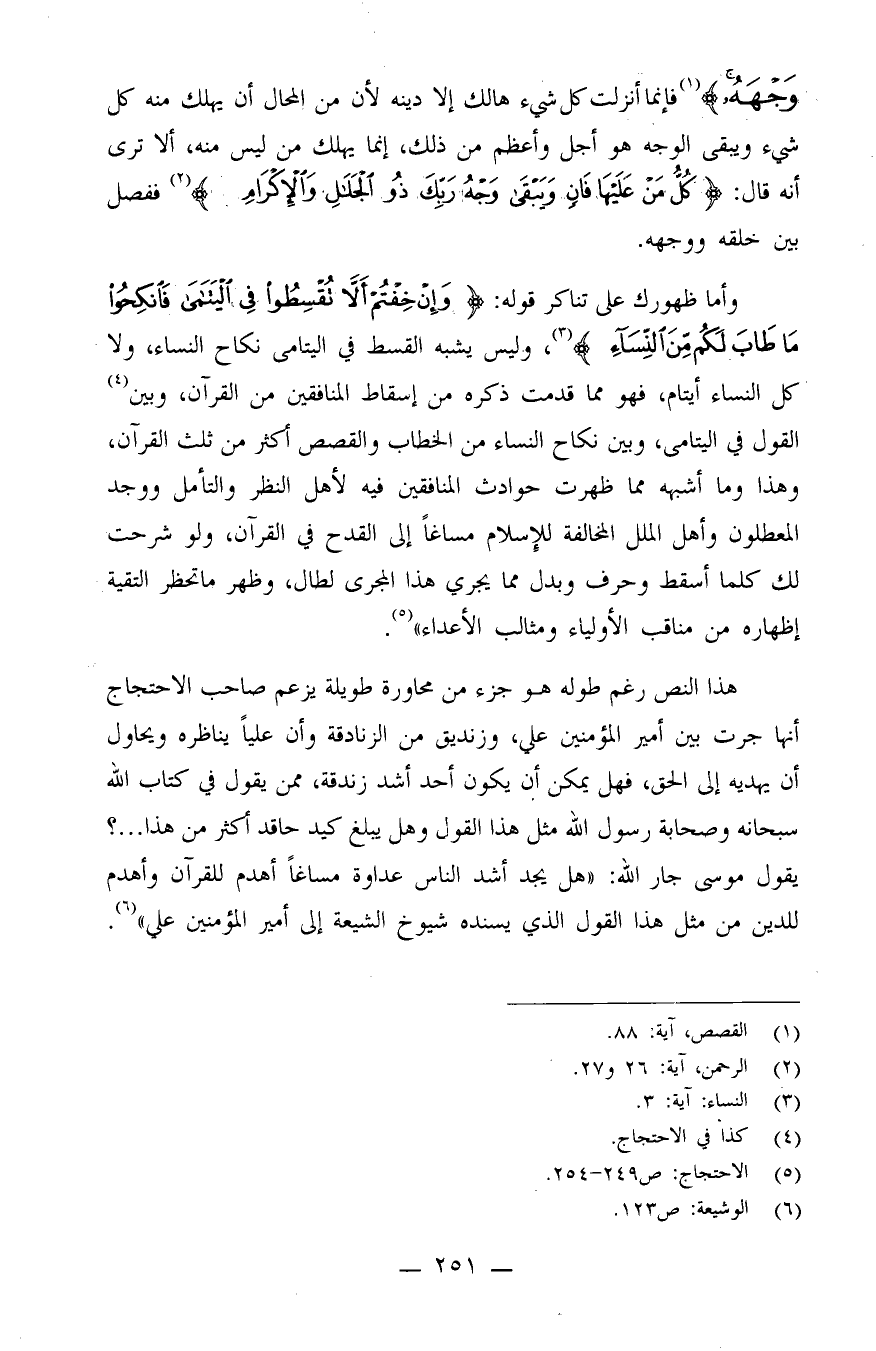 وَجْهَهُۥ ﴾(١) فإنما أنزلت كل شيء هالك إلا دينه لأن من المحال أن يهلك منه كل
شيء ويبقى الوجه هو أجل وأعظم من ذلك، إنما يهلك من ليس منه، ألا ترى
أنه قال: ﴿ كُلُّ مَنْ عَلَيْهَا فَانٍ وَيَبْقَىٰ وَجْهُ رَبِّكَ ذُو ٱلْجَلَٰلِ وَٱلْإِكْرَامِ ﴾(٢) ففصل
بين خلقه ووجهه.
وأما ظهورك على تناكر قوله: ﴿ وَإِنْ خِفْتُمْ أَلَّا تُقْسِطُوا۟ فِى ٱلْيَتَٰمَىٰ فَٱنكِحُوا۟
مَا طَابَ لَكُم مِّنَ ٱلنِّسَآءِ ﴾(٣)، وليس يشبه القسط في اليتامى نكاح النساء، ولا
كل النساء أيتام، فهو مما قدمت ذكره من إسقاط المنافقين من القرآن، وبين(٤)
القول في اليتامى، وبين نكاح النساء من الخطاب والقصص أكثر من ثلث القرآن،
وهذا وما أشبهه مما ظهرت حوادث المنافقين فيه لأهل النظر والتأمل ووجد
المعطلون وأهل الملل المخالفة للإسلام مساغاً إلى القدح في القرآن، ولو شرحت
لك كلما أسقط وحرف وبدل مما يجري هذا المجرى لطال، وظهر ماتحظر التقية
إظهاره من مناقب الأولياء ومثالب الأعداء»(٥).
هذا النص رغم طوله هو جزء من محاورة طويلة يزعم صاحب الاحتجاج
أنها جرت بين أمير المؤمنين علي، وزنديق من الزنادقة وأن علياً يناظره ويحاول
أن يهديه إلى الحق، فهل يمكن أن يكون أحد أشد زندقة، ممن يقول في كتاب الله
سبحانه وصحابة رسول الله مثل هذا القول وهل يبلغ كيد حاقد أكثر من هذا...؟
يقول موسى جار الله: «هل يجد أشد الناس عداوة مساغاً أهدم للقرآن وأهدم
للدين من مثل هذا القول الذي يسنده شيوخ الشيعة إلى أمير المؤمنين علي»(٦).
(١) القصص، آية: ٨٨.
(٢) الرحمن، آية: ٢٦ و٢٧.
(٣) النساء: آية: ٣.
(٤) كذا في الاحتجاج.
(٥) الاحتجاج: ص٢٤٩-٢٥٤.
(٦) الوشيعة: ص١٢٣.
— ٢٥١ —